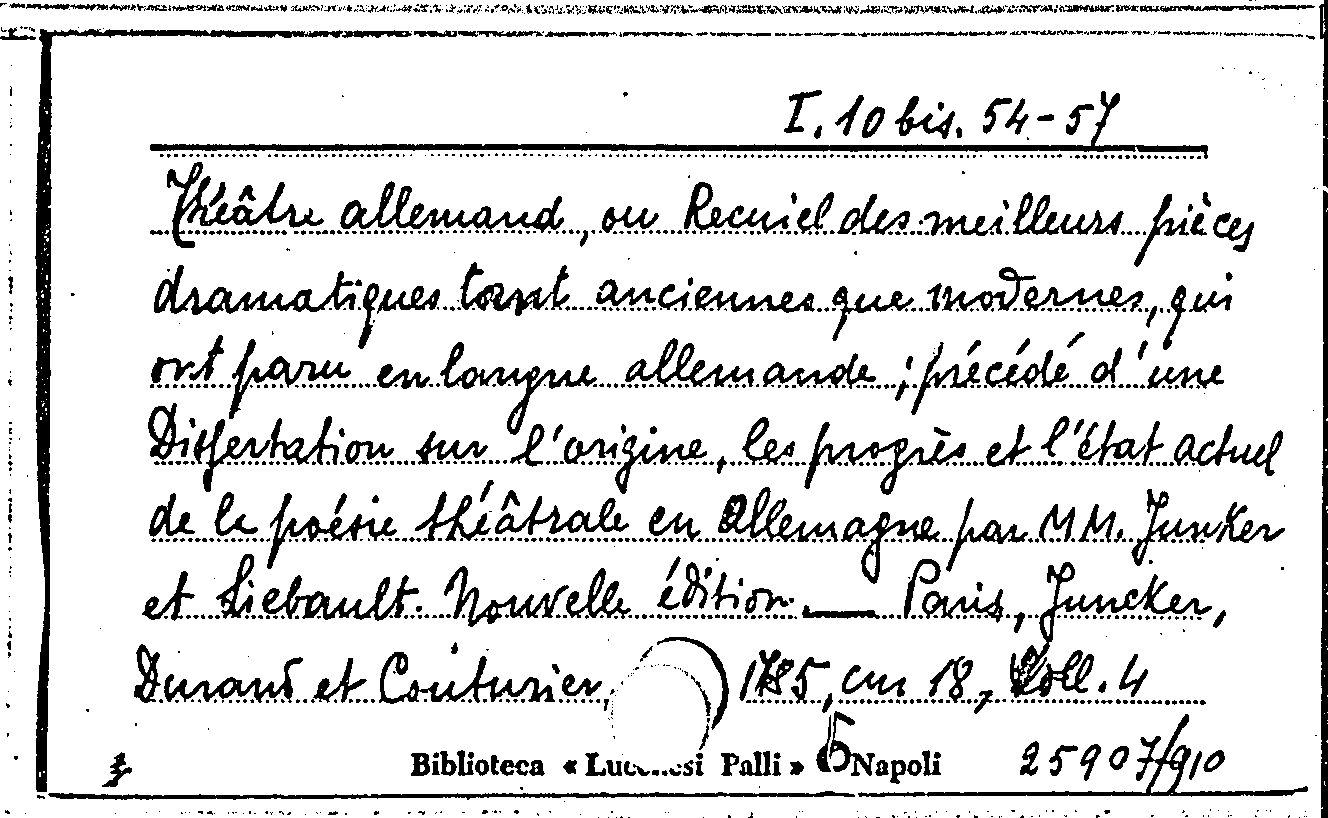 I. 10 bis. 54-57
Théâtre allemand, ou Recuiel des meilleurs pièces
dramatiques tant anciennes que modernes, qui
ont paru en langue allemande; précédé d'une
Dissertation sur l'origine, les progrès et l'état actuel
de la poésie théâtrale en Allemagne par MM. Junker
et Liebault. Nouvelle édition. — Paris, Juncker,
Durand et Couturier, 1785, cm 18, Voll. 4
Biblioteca « Lucchesi Palli » Napoli 25907/910